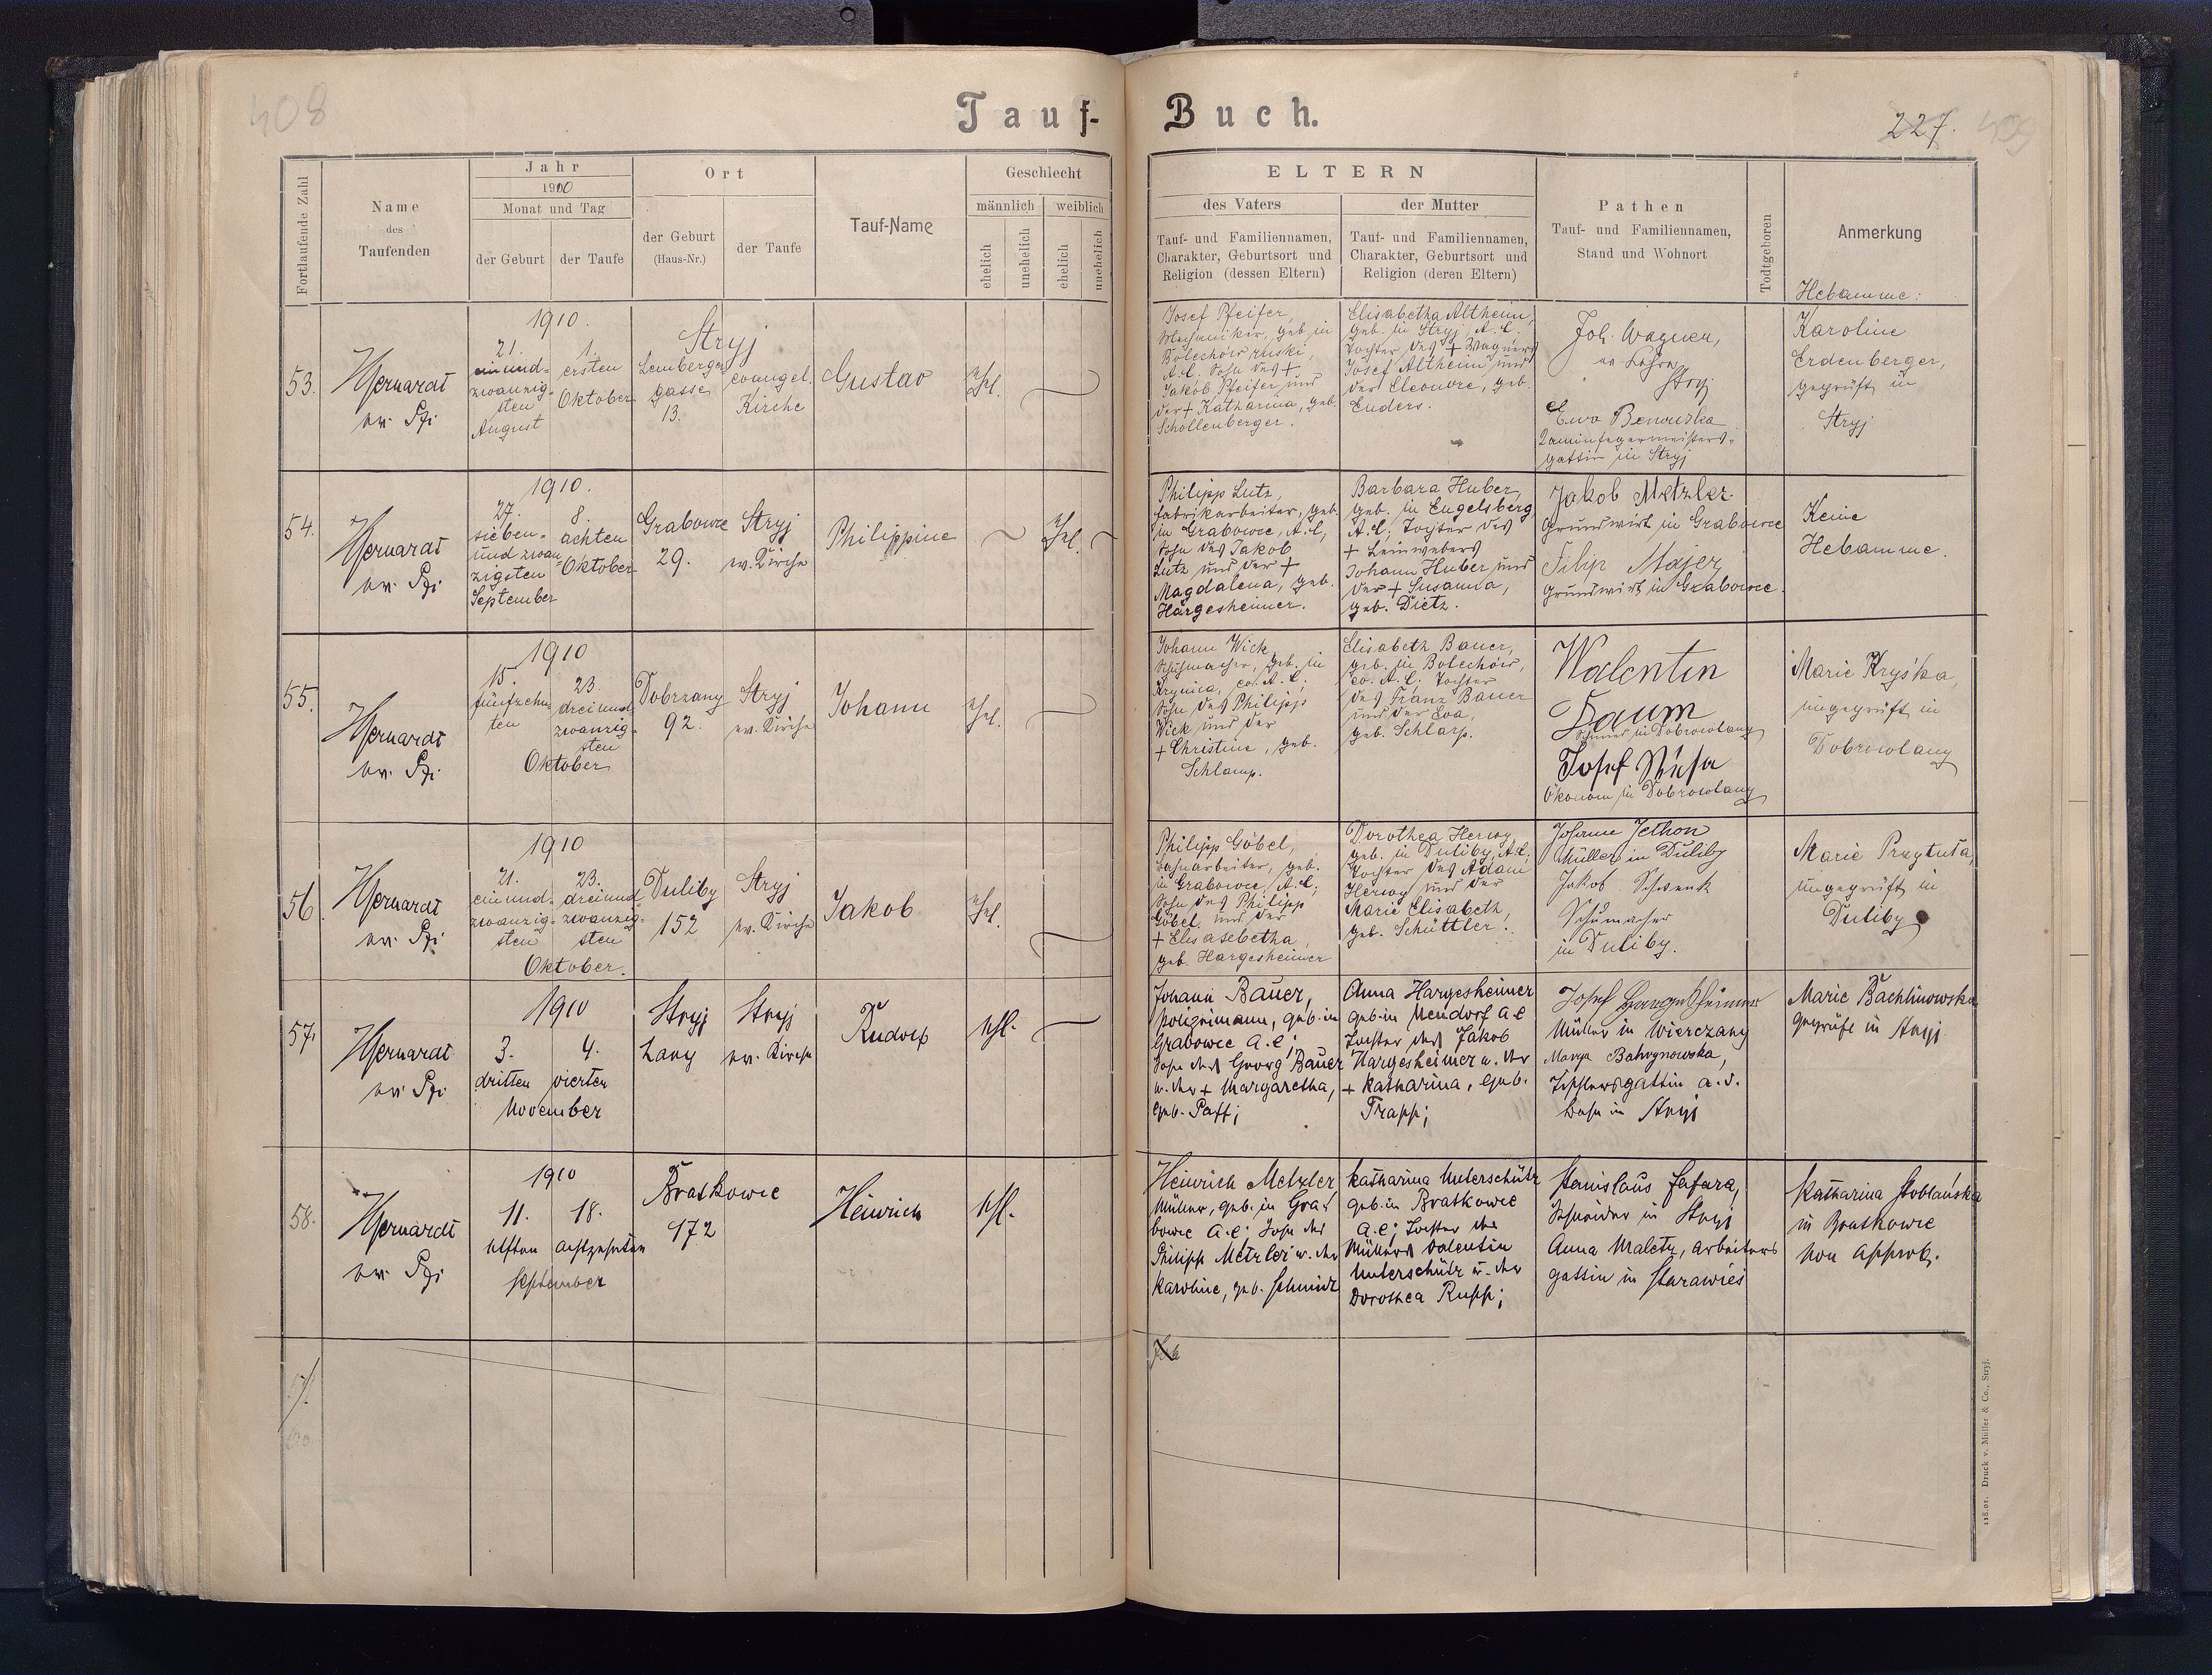 408
Tauf-
Buch.
227.
409
Fortlaufende Zahl
Name
des
Taufenden
Jahr
1910
Monat und Tag
der Geburt
der Taufe
Ort
der Geburt
(Haus-Nr.)
der Taufe
Tauf-Name
Geschlecht
männlich
weiblich
ehelich
unehelich
ehelich
unehelich
ELTERN
des Vaters
Tauf- und Familiennamen,
Charakter, Geburtsort und
Religion (dessen Eltern)
der Mutter
Tauf- und Familiennamen,
Charakter, Geburtsort und
Religion (deren Eltern)
Pathen
Tauf- und Familiennamen,
Stand und Wohnort
Todtgeboren
Anmerkung
Hebamme:
53.
1910.
21.
einund-
zwanzig-
sten
August
1.
ersten
Oktober
Stryj
Lemberger
gasse
13.
evangel.
Kirche
Gustav
Ehl.
Josef Pfeifer,
Mechaniker, geb. in
Bolechów ruski,
A.C. Sohn des +
Jakob Pfeifer und
der + Katharina, geb.
Schollenberger.
Elisabetha Altheim,
geb. in Stryj, A.C.
Tochter des + Wagners
Josef Altheim und
der Eleonore, geb.
Enders.
Joh. Wagner,
ev. Lehrer
Stryj
Ewa Benowska
Kaminfegermeisters-
gattin in Stryj
Karoline
Erdenberger,
geprüft in
Stryj
54.
1910.
27.
sieben-
und zwan-
zigsten
September
8.
achten
Oktober
Grabowce
29.
Stryj
ev. Kirche
Philippine
Ehl.
Philipp Lutz,
Fabrikarbeiter, geb.
in Grabowce, A.C,
Sohn des Jakob
Lutz und der +
Magdalena, geb.
Hargesheimer.
Barbara Huber,
geb. in Engelsberg
A.C; Tochter des
+ Leinwebers
Johann Huber und
der + Susanna,
geb. Dietz.
Jakob Metzler
Grundwirt in Grabowce
Filip Majer
Grundwirt in Grabowce.
Keine
Hebamme.
55.
1910
15.
fünfzehn-
ten
23.
dreiund
zwanzig-
sten
Oktober
Dobrzany
92.
Stryj
ev. Kirche
Johann
Ehl.
Johann Wick,
Schuhmacher, geb. in
Krynica, ev. A.C.;
Sohn des Philipp
Wick und der
+ Christine, geb.
Schlamp.
Elisabeth Bauer,
geb. in Bolechów,
ev. A.C. Tochter
des Franz Bauer
und der Eva,
geb. Schlarp.
Walentin
Daum
in Dobrowlany
Josef
Ökonom in Dobrowlany
Marie Kryśka,
ungeprüft in
Dobrowlany
56.
1910
21.
einund-
zwanzig-
sten
23.
dreiund
zwanzig-
sten
Oktober.
Duliby
152
Stryj
ev. Kirche
Jakob
Ehl.
Philipp Göbel,
Bahnarbeiter, geb.
in Grabowce, A.C;
Sohn des Philipp
Göbel und der
+ Elisasebetha,
geb. Hargesheimer
Dorothea Herzog,
geb. in Duliby, A.C;
Tochter des Adam
Herzog und der
Marie Elisabeth,
geb. Schüttler.
Johann Jethon
Müller in Duliby
Jakob Schwenk
Schumacher
in Duliby.
Marie Przytuła,
ungeprüft in
Duliby
57.
1910
3.
dritten
4.
vierten
November
Stryj
Lany
Stryj
ev. Kirche
Rudolf
Ehl.
Johann Bauer,
Polizeimann, geb. in
Grabowce A.C;
Sohn des Georg Bauer
u. der + Margaretha,
geb. Paff;
Anna Hargesheimer
geb. in Neudorf A.C
Tochter des Jakob
Hargesheimer u. der
+ Katharina, geb.
Trapp;
Josef Hargesheimer
Müller in Wierczany
Marya Bahrynowska,
gattin a. d.
Bahn in Stryj
Marie Bachlinowska
geprüft in Stryj
58.
1910
11.
elften
18.
achtzehnten
September
Bratkowce
172
Heinrich
Ehl.
Heinrich Metzler,
Müller, geb. in Gra-
bowce A.C; Sohn des
Philipp Metzler u. der
Karoline, geb. Schmidt
Katharina Unterschütz
geb. in Bratkowce
A.C; Tochter des
Müllers Valentin
Unterschütz u. der
Dorothea Rupp;
Stanislaus Fafara,
Schneider in Stryj
Anna Maletz, Arbeiters
gattin in Starawieś
Katharina Stoblańska
in Bratkowce
non approb.
118.01. Druck v. Müller & Co., Stryj.